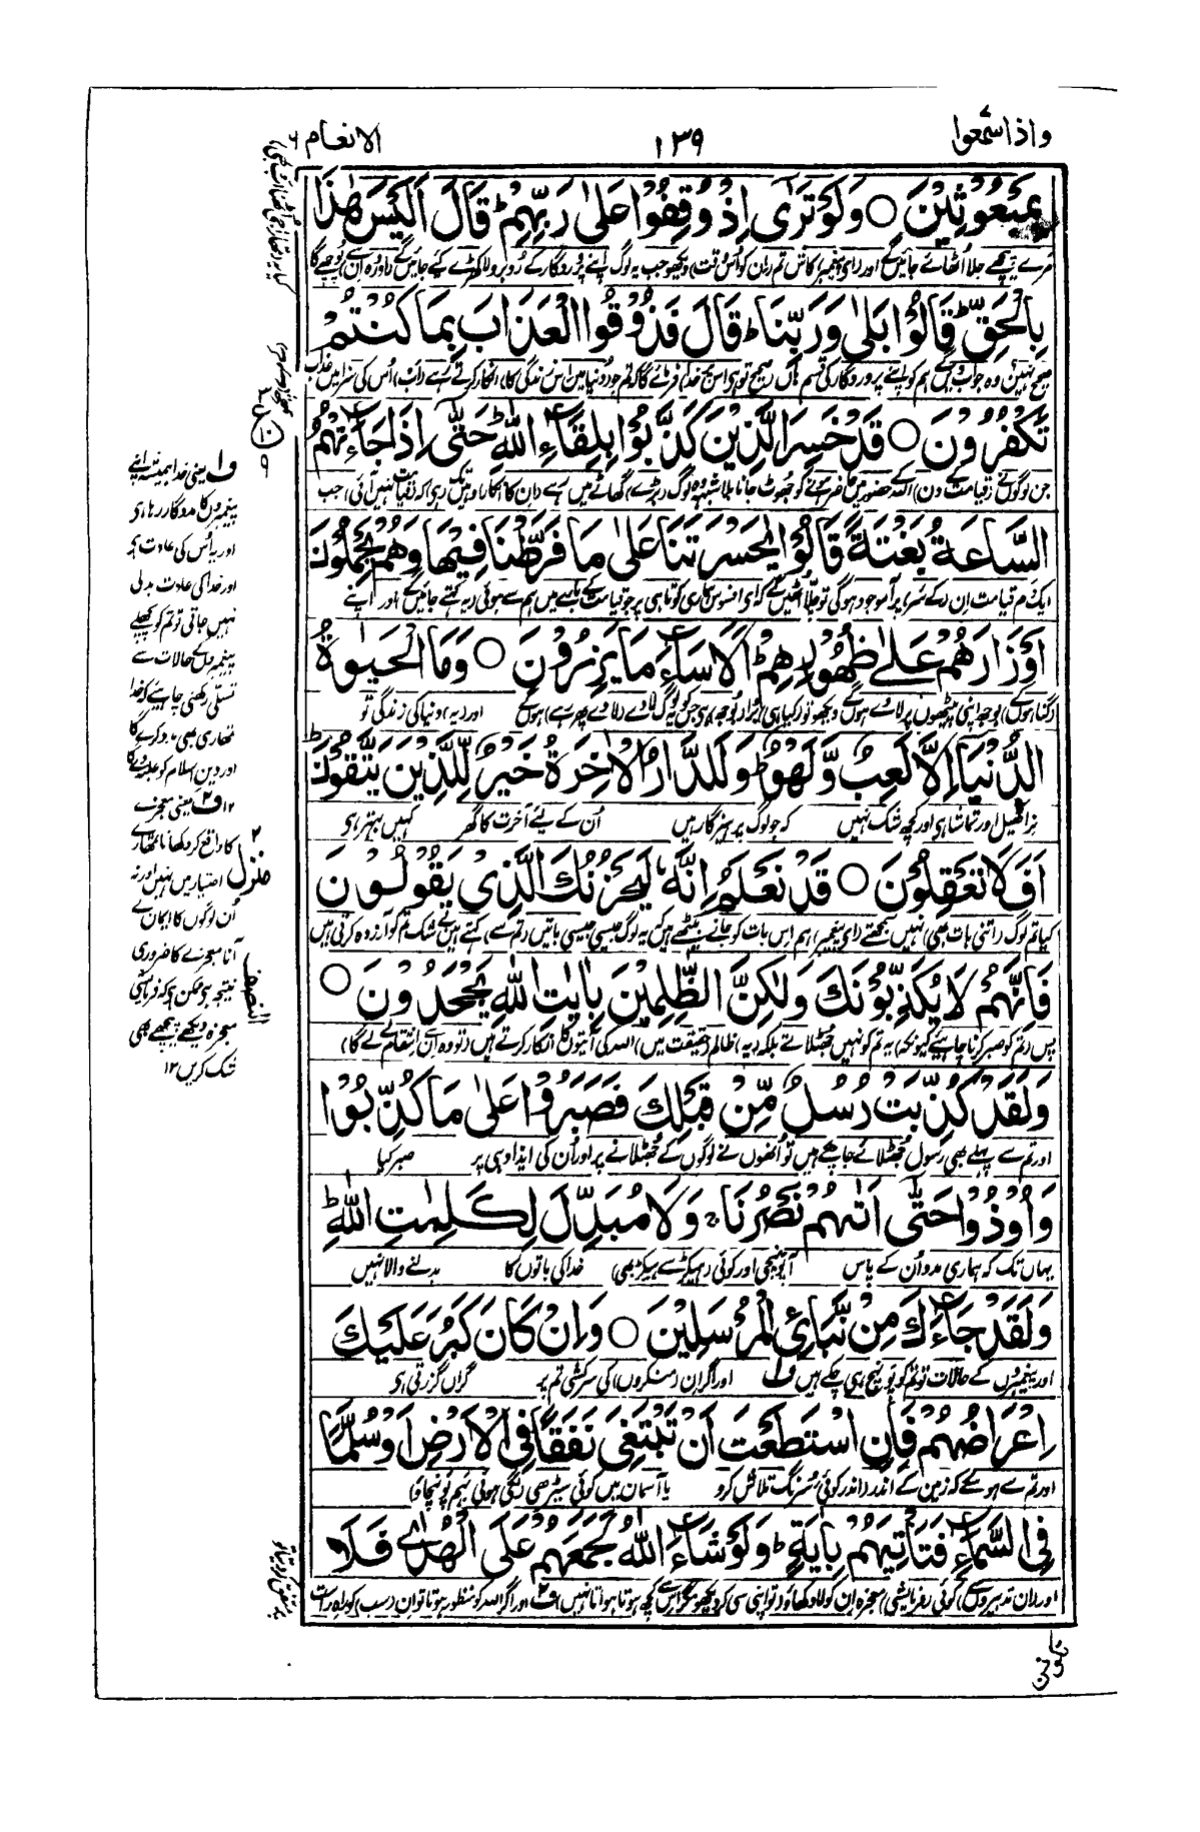 واذا سمعوا ۷
۱۳۹
الانعام ۶
بِمَبْعُوْثِیْنَ ○ وَلَوْ تَرٰۤی اِذْ وُقِفُوْا عَلٰی رَبِّهِمْ ؕ قَالَ اَلَیْسَ هٰذَا
مرے پیچھے جلا اُٹھائے جائیں گے اور (اے پیغمبر) کاش تم (ان کو اُس وقت) دیکھو جب یہ لوگ اپنے پروردگار کے روبرو لا کھڑے کئے جائیں گے (اور وہ ان سے) پوچھے گا
بِالْحَقِّ ؕ قَالُوْا بَلٰی وَرَبِّنَا ؕ قَالَ فَذُوْقُوا الْعَذَابَ بِمَا كُنْتُمْ
صحیح نہیں؟ وہ جواب دیں گے ہم کو اپنے پروردگار کی قسم ہاں صحیح تو ہی اس پر خدا فرمائے گا کہ تم جو (دنیا میں اس زندگی کا) انکار کرتے رہے (اب) اُس کی سزا میں عذاب
تَكْفُرُوْنَ ○ قَدْ خَسِرَ الَّذِیْنَ كَذَّبُوْا بِلِقَآءِ اللّٰهِ ؕ حَتّٰۤی اِذَا جَآءَتْهُمُ
جن لوگوں نے (قیامت کے دن) اللہ کے حضور میں حاضر ہونے کو جھوٹ جانا بلاشبہ وہ لوگ (بڑے) گھاٹے میں رہے (ان کا انکار) وہیں تک رہی (کہ قیامت نہیں آئی) جب
السَّاعَةُ بَغْتَةً قَالُوْا یٰحَسْرَتَنَا عَلٰی مَا فَرَّطْنَا فِیْهَا وَهُمْ یَحْمِلُوْنَ
ایک دم قیامت اِن (کے سر) پر آ موجود ہوگی تو چلّا اُٹھیں گے کہ ای افسوس ہماری کوتاہی پر جو قیامت کے بارے میں ہم سے ہوئی (یہ کہتے جائیں گے) اور اپنے
اَوْزَارَهُمْ عَلٰی ظُهُوْرِهِمْ ؕ اَلَا سَآءَ مَا یَزِرُوْنَ ○ وَمَا الْحَیٰوةُ
(گناہوں کے) بوجھ اپنی پیٹھوں پر لادے ہوں گے دیکھو تو کیا ہی (بُرا بوجھ) ہی جس کو یہ لوگ لادے (لادے پھر رہے) ہوں گے اور (یہ) دنیا کی زندگی تو
الدُّنْیَاۤ اِلَّا لَعِبٌ وَّلَهْوٌ ؕ وَلَلدَّارُ الْاٰخِرَةُ خَیْرٌ لِّلَّذِیْنَ یَتَّقُوْنَ ؕ
نرا کھیل اور تماشا ہی اور کچھ شک نہیں کہ جو لوگ پرہیزگار ہیں اُن کے لیئے آخرت کا گھر کہیں بہتر ہی
اَفَلَا تَعْقِلُوْنَ ○ قَدْ نَعْلَمُ اِنَّهٗ لَیَحْزُنُكَ الَّذِیْ یَقُوْلُوْنَ
کیا تم لوگ (اتنی بات بھی) نہیں سمجھتے (ای پیغمبر) ہم اس بات کو جانے بیٹھے ہیں کہ یہ لوگ جیسی جیسی باتیں (تم سے) کہتے ہیں بے شک تم کو آزردہ کرتی ہیں
فَاِنَّهُمْ لَا یُكَذِّبُوْنَكَ وَلٰكِنَّ الظّٰلِمِیْنَ بِاٰیٰتِ اللّٰهِ یَجْحَدُوْنَ ○
پس (تم کو صبر کرنا چاہئے کیونکہ) یہ تم کو نہیں جھٹلاتے بلکہ (یہ) ظالم (حقیقت میں) اللہ کی آیتوں کا انکار کرتے ہیں (تو وہ ان سے انتقام لے لے گا)
وَلَقَدْ كُذِّبَتْ رُسُلٌ مِّنْ قَبْلِكَ فَصَبَرُوْا عَلٰی مَا كُذِّبُوْا
اور تم سے پہلے بھی رسول جھٹلائے جا چکے ہیں تو اُنھوں نے لوگوں کے جھٹلانے پر اور اُن کی ایذادہی پر صبر کیا
وَاُوْذُوْا حَتّٰۤی اَتٰهُمْ نَصْرُنَا ۚ وَلَا مُبَدِّلَ لِكَلِمٰتِ اللّٰهِ ۚ
یہاں تک کہ ہماری مدد اُن کے پاس آ پہونچی اور کوئی خدا کی باتوں کا بدلنے والا نہیں
وَلَقَدْ جَآءَكَ مِنْ نَّبَائِ الْمُرْسَلِیْنَ ○ وَاِنْ كَانَ كَبُرَ عَلَیْكَ
اور پیغمبروں کے حالات تو تم کو پہونچ ہی چکے ہیں ف۱ اور اگر ان (منکروں) کی سرکشی تم پر گراں گزرتی ہی
اِعْرَاضُهُمْ فَاِنِ اسْتَطَعْتَ اَنْ تَبْتَغِیَ نَفَقًا فِی الْاَرْضِ اَوْ سُلَّمًا
اور تم سے ہو سکے کہ زمین کے اندر (اندر کوئی) سُرنگ تلاش کرو یا آسمان میں کوئی سیڑھی (لگی ہوئی بہم پہونچاؤ)
فِی السَّمَآءِ فَتَاْتِیَهُمْ بِاٰیَةٍ ؕ وَلَوْ شَآءَ اللّٰهُ لَجَمَعَهُمْ عَلَی الْهُدٰی فَلَا
اور (ان تدبیروں سے) کوئی (فرمایشی) معجزہ ان کو لا دکھاؤ (تو اپنی سی کر دیکھو مگر اس سے کچھ ہوتا ہواتا نہیں) ف۲ اور اگر اللہ کو منظور ہوتا تو ان (سب) کو راہ راست
ف۱ یعنی خدا ہمیشہ اپنے
پیغمبروں کا مددگار رہا ہی
اور یہ اُس کی عادت ہی
اور خدا کی عادت بدلی
نہیں جاتی تو تم کو پچھلے
پیغمبروں کے حالات سے
تسلی رکھنی چاہیئے کہ خدا
تمھاری بھی مدد کرے گا
اور دین اسلام کو غلبہ دے گا
۱۲ ف۲ یعنی معجزے
کا واقع کر دکھانا تمھارے
اختیار میں نہیں اور نہ
اُن لوگوں کا ایمان لے
آنا معجزے کا ضروری
نتیجہ ہی ممکن ہی کہ فرمایشی
معجزہ دیکھے پیچھے بھی
شک کریں ۱۲
منزل ۲
النصف